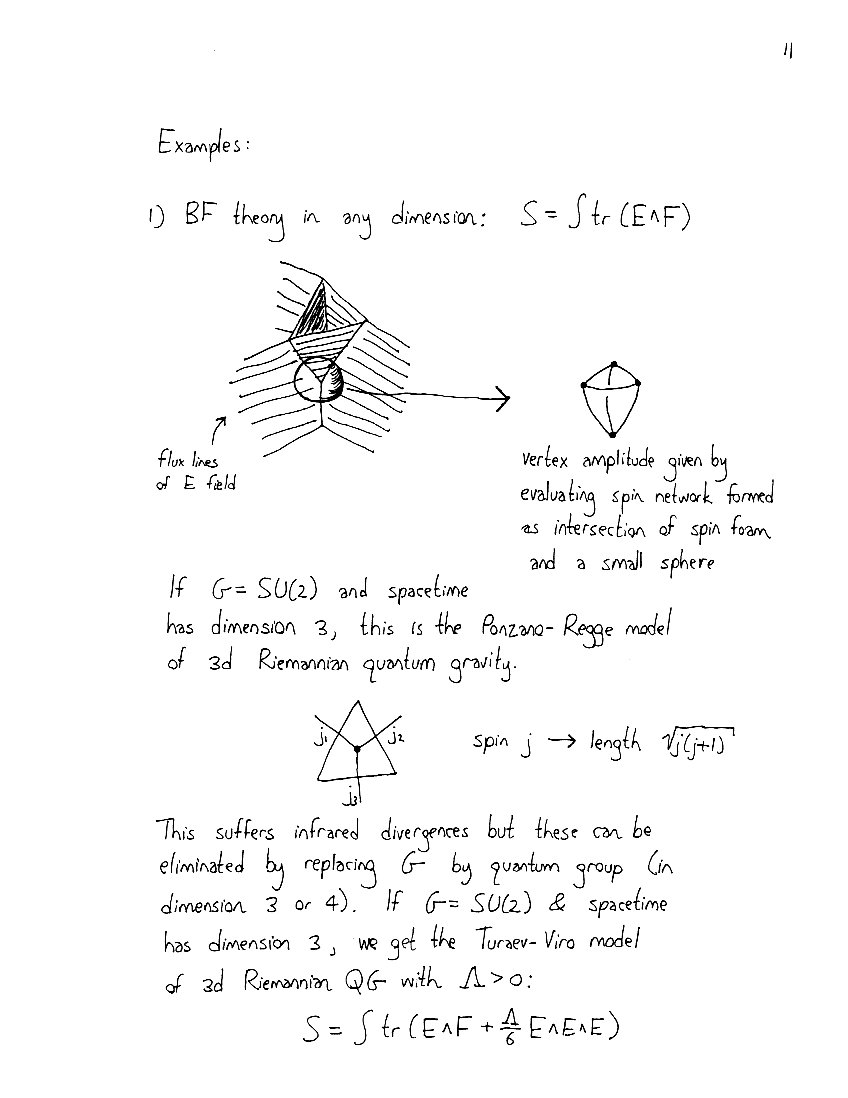 11
Examples:
1) BF theory in any dimension: S = ∫ tr (E∧F)
flux lines
of E field
vertex amplitude given by
evaluating spin network formed
as intersection of spin foam
and a small sphere
If G = SU(2) and spacetime
has dimension 3, this is the Ponzano-Regge model
of 3d Riemannian quantum gravity.
j₁ j₂
j₃
spin j → length √j(j+1)
This suffers infrared divergences but these can be
eliminated by replacing G by quantum group (in
dimension 3 or 4). If G = SU(2) & spacetime
has dimension 3, we get the Turaev-Viro model
of 3d Riemannian QG with Λ > 0:
S = ∫ tr (E∧F + Λ/6 E∧E∧E)